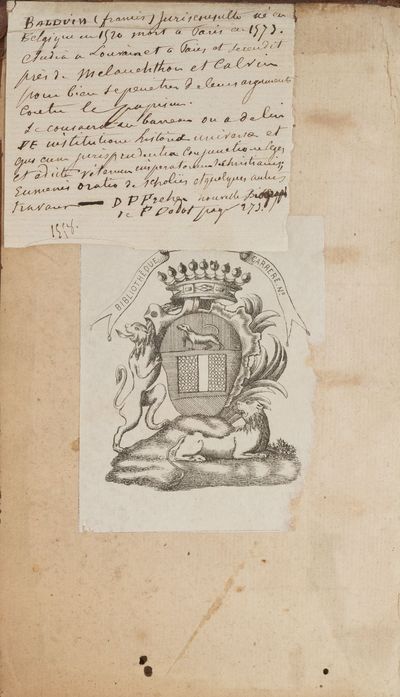 BALDUIN (francois) Jurisconsulte né en
Belgique en 1520 mort a Paris en 1573.
Etudia a Louvain et a Paris et se rendit
près de Melanchthon et Calvin
pour bien se penetrer de leurs arguments
Contre le papisme.
Se consacra au barreau on a de lui
DE institutione historiæ universæ et
ejus cum jurisprudentia conjunctione
et edicta veterum imperatorum de christianis
Eumenes oratio de scholis et quelques autres
travaux — nouvelle
de P Dodot page 273.
1558.
BIBLIOTHÈQUE
CARRÈRE, No